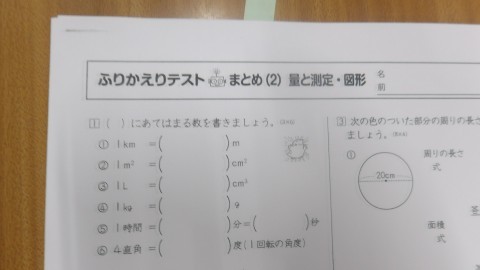 ふりかえりテスト まとめ(2) 量と測定・図形
名前
1 ( )にあてはまる数を書きましょう。
① 1km =( )m
② 1m² =( )cm²
③ 1L =( )cm³
④ 1kg =( )g
⑤ 1時間 =( )分=( )秒
⑥ 4直角 =( )度(1回転の角度)
3 次の色のついた部分の周りの長さ
ましょう。
① 周りの長さ
式
20cm
面積
式